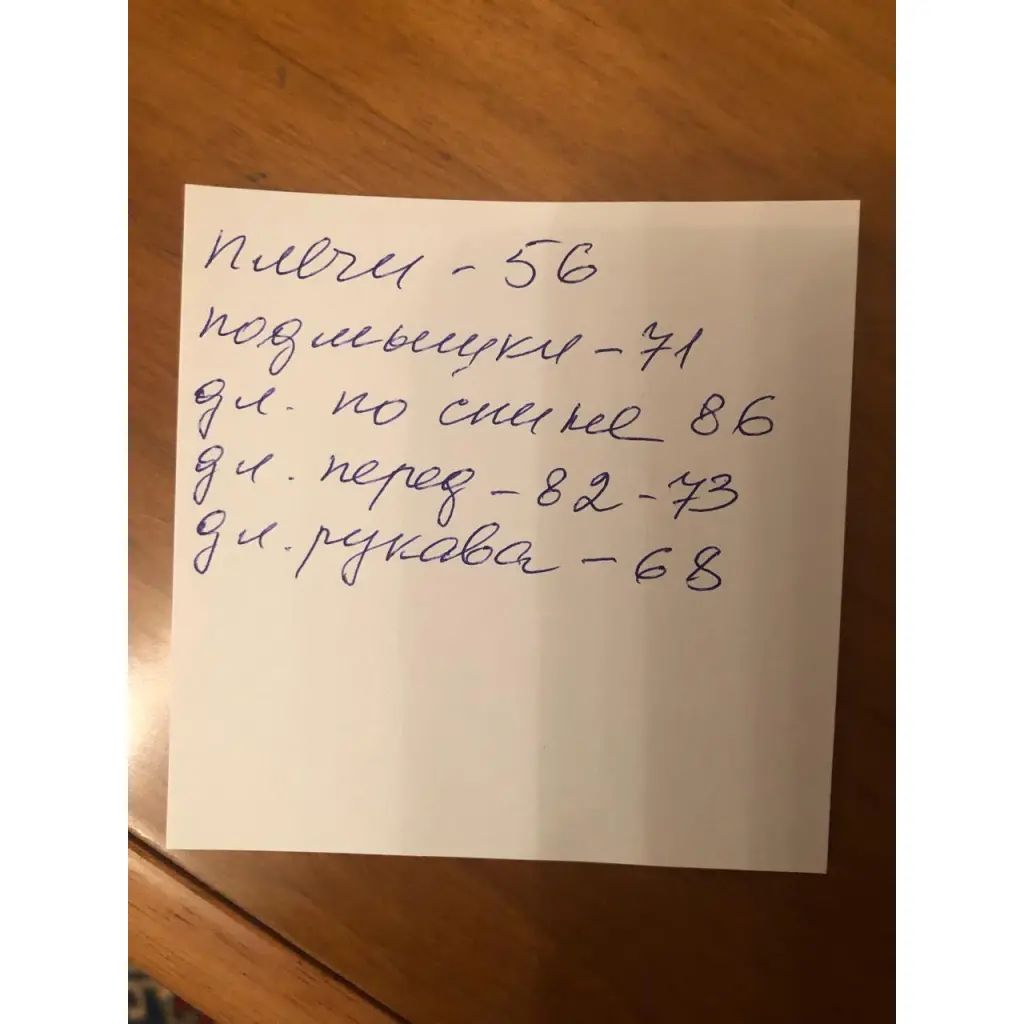 плечи - 56
подмышки - 71
дл. по спине 86
дл. перед - 82 - 73
дл. рукава - 68